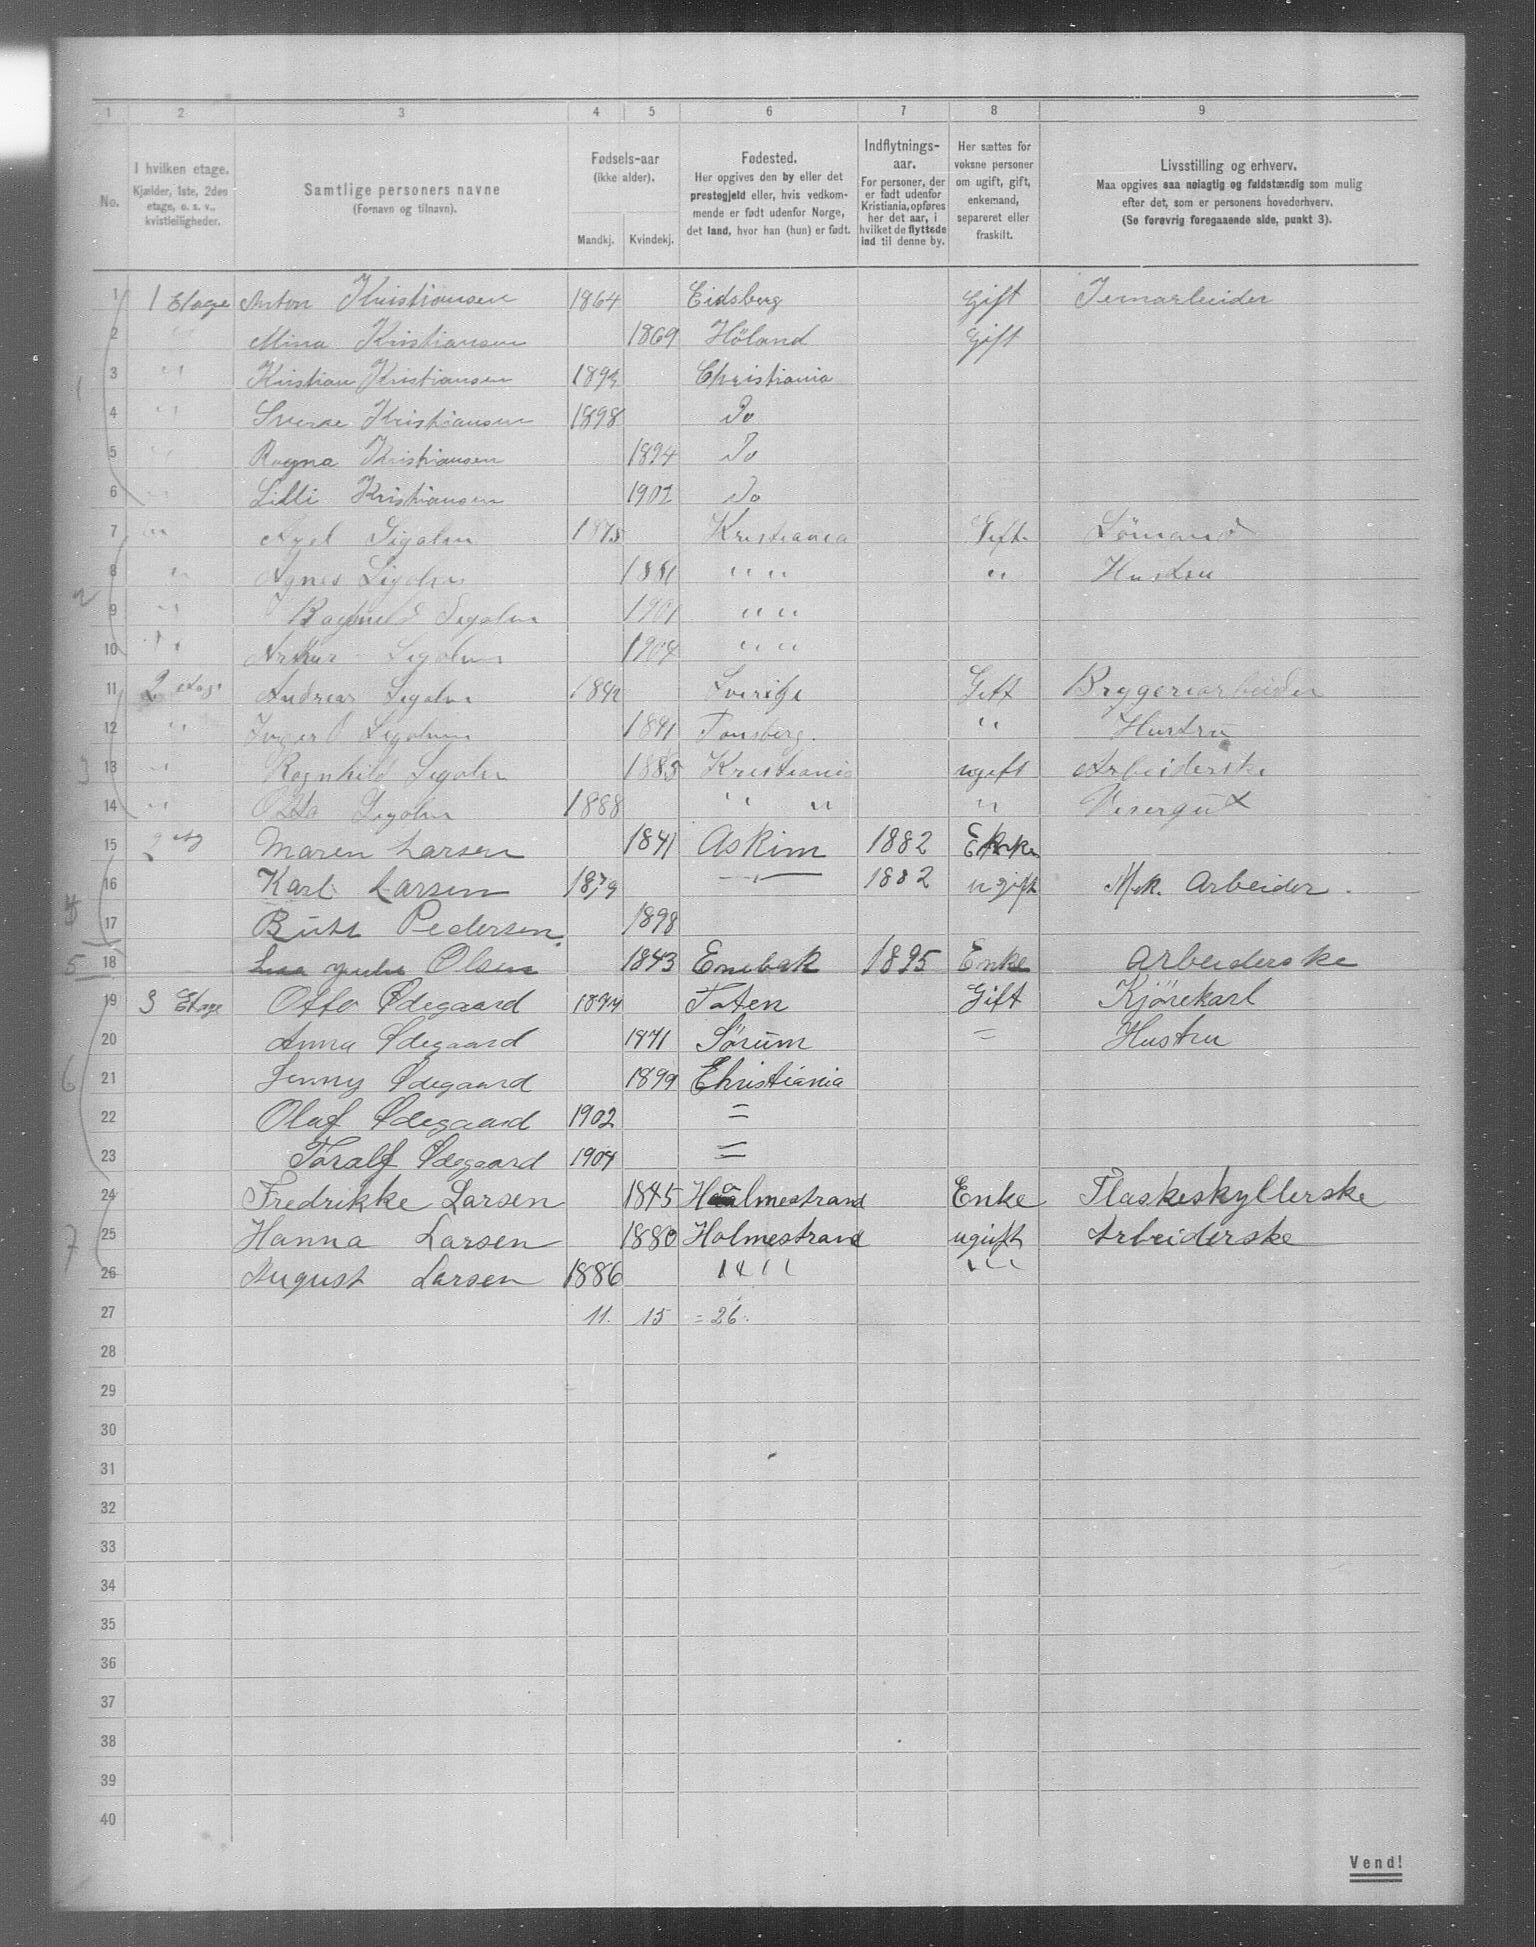 1 2 3 4 5 6 7 8 9
No.
I hvilken etage.
Kjælder, 1ste, 2den
etage, o. s. v.,
kvistleiligheder.
Samtlige personers navne
(Fornavn og tilnavn).
Fødsels-aar
(ikke alder).
Mandkj. Kvindekj.
Fødested.
Her opgives den by eller det
prestegjeld eller, hvis vedkom-
mende er født udenfor Norge,
det land, hvor han (hun) er født.
Indflytnings-
aar.
For personer, der
er født udenfor
Kristiania, opføres
her det aar, i
hvilket de flyttede
ind til denne by.
Her sættes for
voksne personer
om ugift, gift,
enkemand,
separeret eller
fraskilt.
Livsstilling og erhverv.
Maa opgives saa nøiagtig og fuldstændig som mulig
efter det, som er personens hovederhverv.
(Se forøvrig foregaaende side, punkt 3).
1 1 Etage Anton Kristiansen 1864 Eidsberg Gift Jernarbeider
2 " Mina Kristiansen 1869 Höland Gift
3 " Kristian Kristiansen Christiania
4 " Sverre Kristiansen 1898 Do
5 " Ragna Kristiansen 1894 Do
6 " Lilli Kristiansen Do
7 " Axel 1875 Kristiania Gift Sömand
8 " Agnes 1881 " " " Hustru
9 " Ragnhild 1901 " "
10 " 1904 " "
11 2 etag. Andreas Sverige Gift Bryggeriarbeider
12 " 1841 Tønsberg. " Hustru
13 " Ragnhild 1885 Kristiania ugift Arbeiderske
14 " Otto 1888 " " " Visergut
15 2 etg Maren Larsen 1841 Askim 1882 Enke
16 Karl Larsen 1879 — " — 1882 ugift Mek. Arbeider.
17 Pedersen. 1898
18 Olsen 1843 Enebak 1895 Enke Arbeiderske
19 3 Etage Otto Ødegaard 1874 Toten Gift Kjörekarl
20 Anna Ødegaard 1871 Sörum = Hustru
21 Jenny Ødegaard 1899 Christiania
22 Olaf Ødegaard 1902 =
23 Toralf Ødegaard 1904 =
24 Fredrikke Larsen 1845 Holmestrand Enke Flaskeskyllerske
25 Hanna Larsen 1880 Holmestrand ugift Arbeiderske
26 August Larsen 1886 " " "
27 11. 15 = 26.
28
29
30
31
32
33
34
35
36
37
38
39
40
2
3
4
5
6
7
Vend!